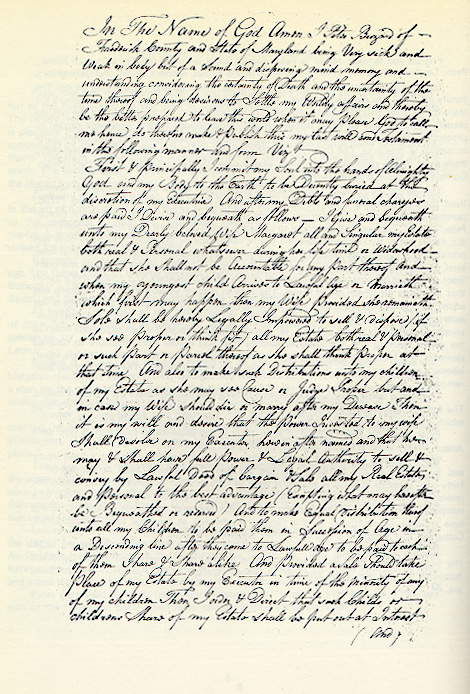 In The Name of God Amen I Peter of
Frederick County and State of Maryland being Very sick and
Weak in body but of a Sound and disposing mind memory and
understanding considering the certainty of Death and the uncertainty of the
time thereof and being desirous to Settle my Worldly affairs and thereby
be the better prepared to leave this world when it may please God to call
me hence do therefore make & Publish this my last will and Testament
in the following manner and form Vizt
First & Principally I commit my Soul into the hands of Almighty
God and my Body to the Earth to be Decently buried at the
discretion of my Executrix And after my Debts and funeral chargers
are paid I Divise and bequeath as follows — I Give and bequeath
unto my Dearly beloved Wife Margaret all and Singular my Estate
both real & Personal whatsoever during her life time or Widowhood
and that she shall not be Accountable for any part thereof And
when my youngest child Arrives to Lawful Age or Marrieth
which first may happen then my Wife provided she remaineth
Sole shall be hereby Legally Impowered to sell & dispose (if
she see proper or think fit) all my Estate both real & personal
or such Part or Parcel thereof as she shall think proper at
that time And also to make such Distributions unto my children
of my Estate as she may see Cause or Judge Proper but and
in case my Wife should die or marry after my Decease Then
it is my will and desire that the power Invested to my wife
Shall Desolve on my Executor herein after named and that he
may & shall have full Power & Lawful Authority to sell &
convey by Lawful Deed of bargain & Sale all my Real Estate
and Personal to the best advantage (Excepting what may hereafter
be Bequeathed or ) And to make Equal distribution thereof
unto all my Children to be paid them in Succession of Age in
a Descending line after they come to Lawfull Age to be paid to each
of them Share & Share alike And Provided a sale should take
Place of my Estate by my Executor in time of the Minority of any
of my children Then I order & Direct that such Childs or
childrens Share of my Estate shall be put out at Interest
(And)